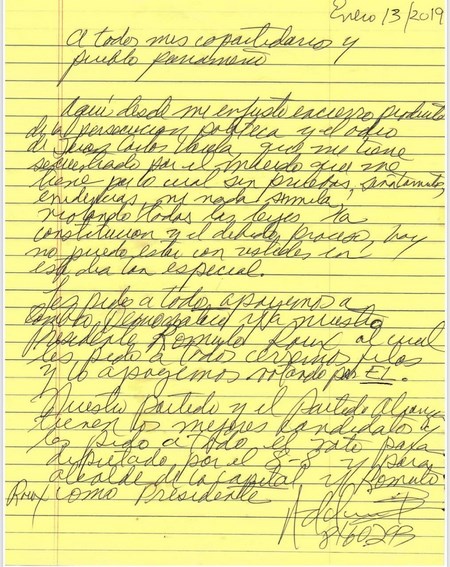 Enero 13/2019
A todos mis copartidario y
pueblo panameño
Aquí desde mi enjusto encierro producto
de la persecucion politica y el odio
de Juan Carlos Varela, que me tiene
secuestrado por el miedo que me
tiene por lo cual sin pruebas,
evidencias ni nada similar,
violando todas las leyes la
constitucion y el debido proceso, hoy
no puedo estar con ustedes en
este dia tan especial.
Les pido a todos apoyemos a
Cambio Democratico y a nuestro
Presidente Romulo Roux al cual
les pido a todos cerremos filas
y lo apoyemos votando por El.
Nuestro Partido y el Partido Alianza
tienen los mejores candidatos y
les pido a todo el voto para
diputado por el 8-8 y para
alcalde de la capital y Romulo
Roux como Presidente
8160293